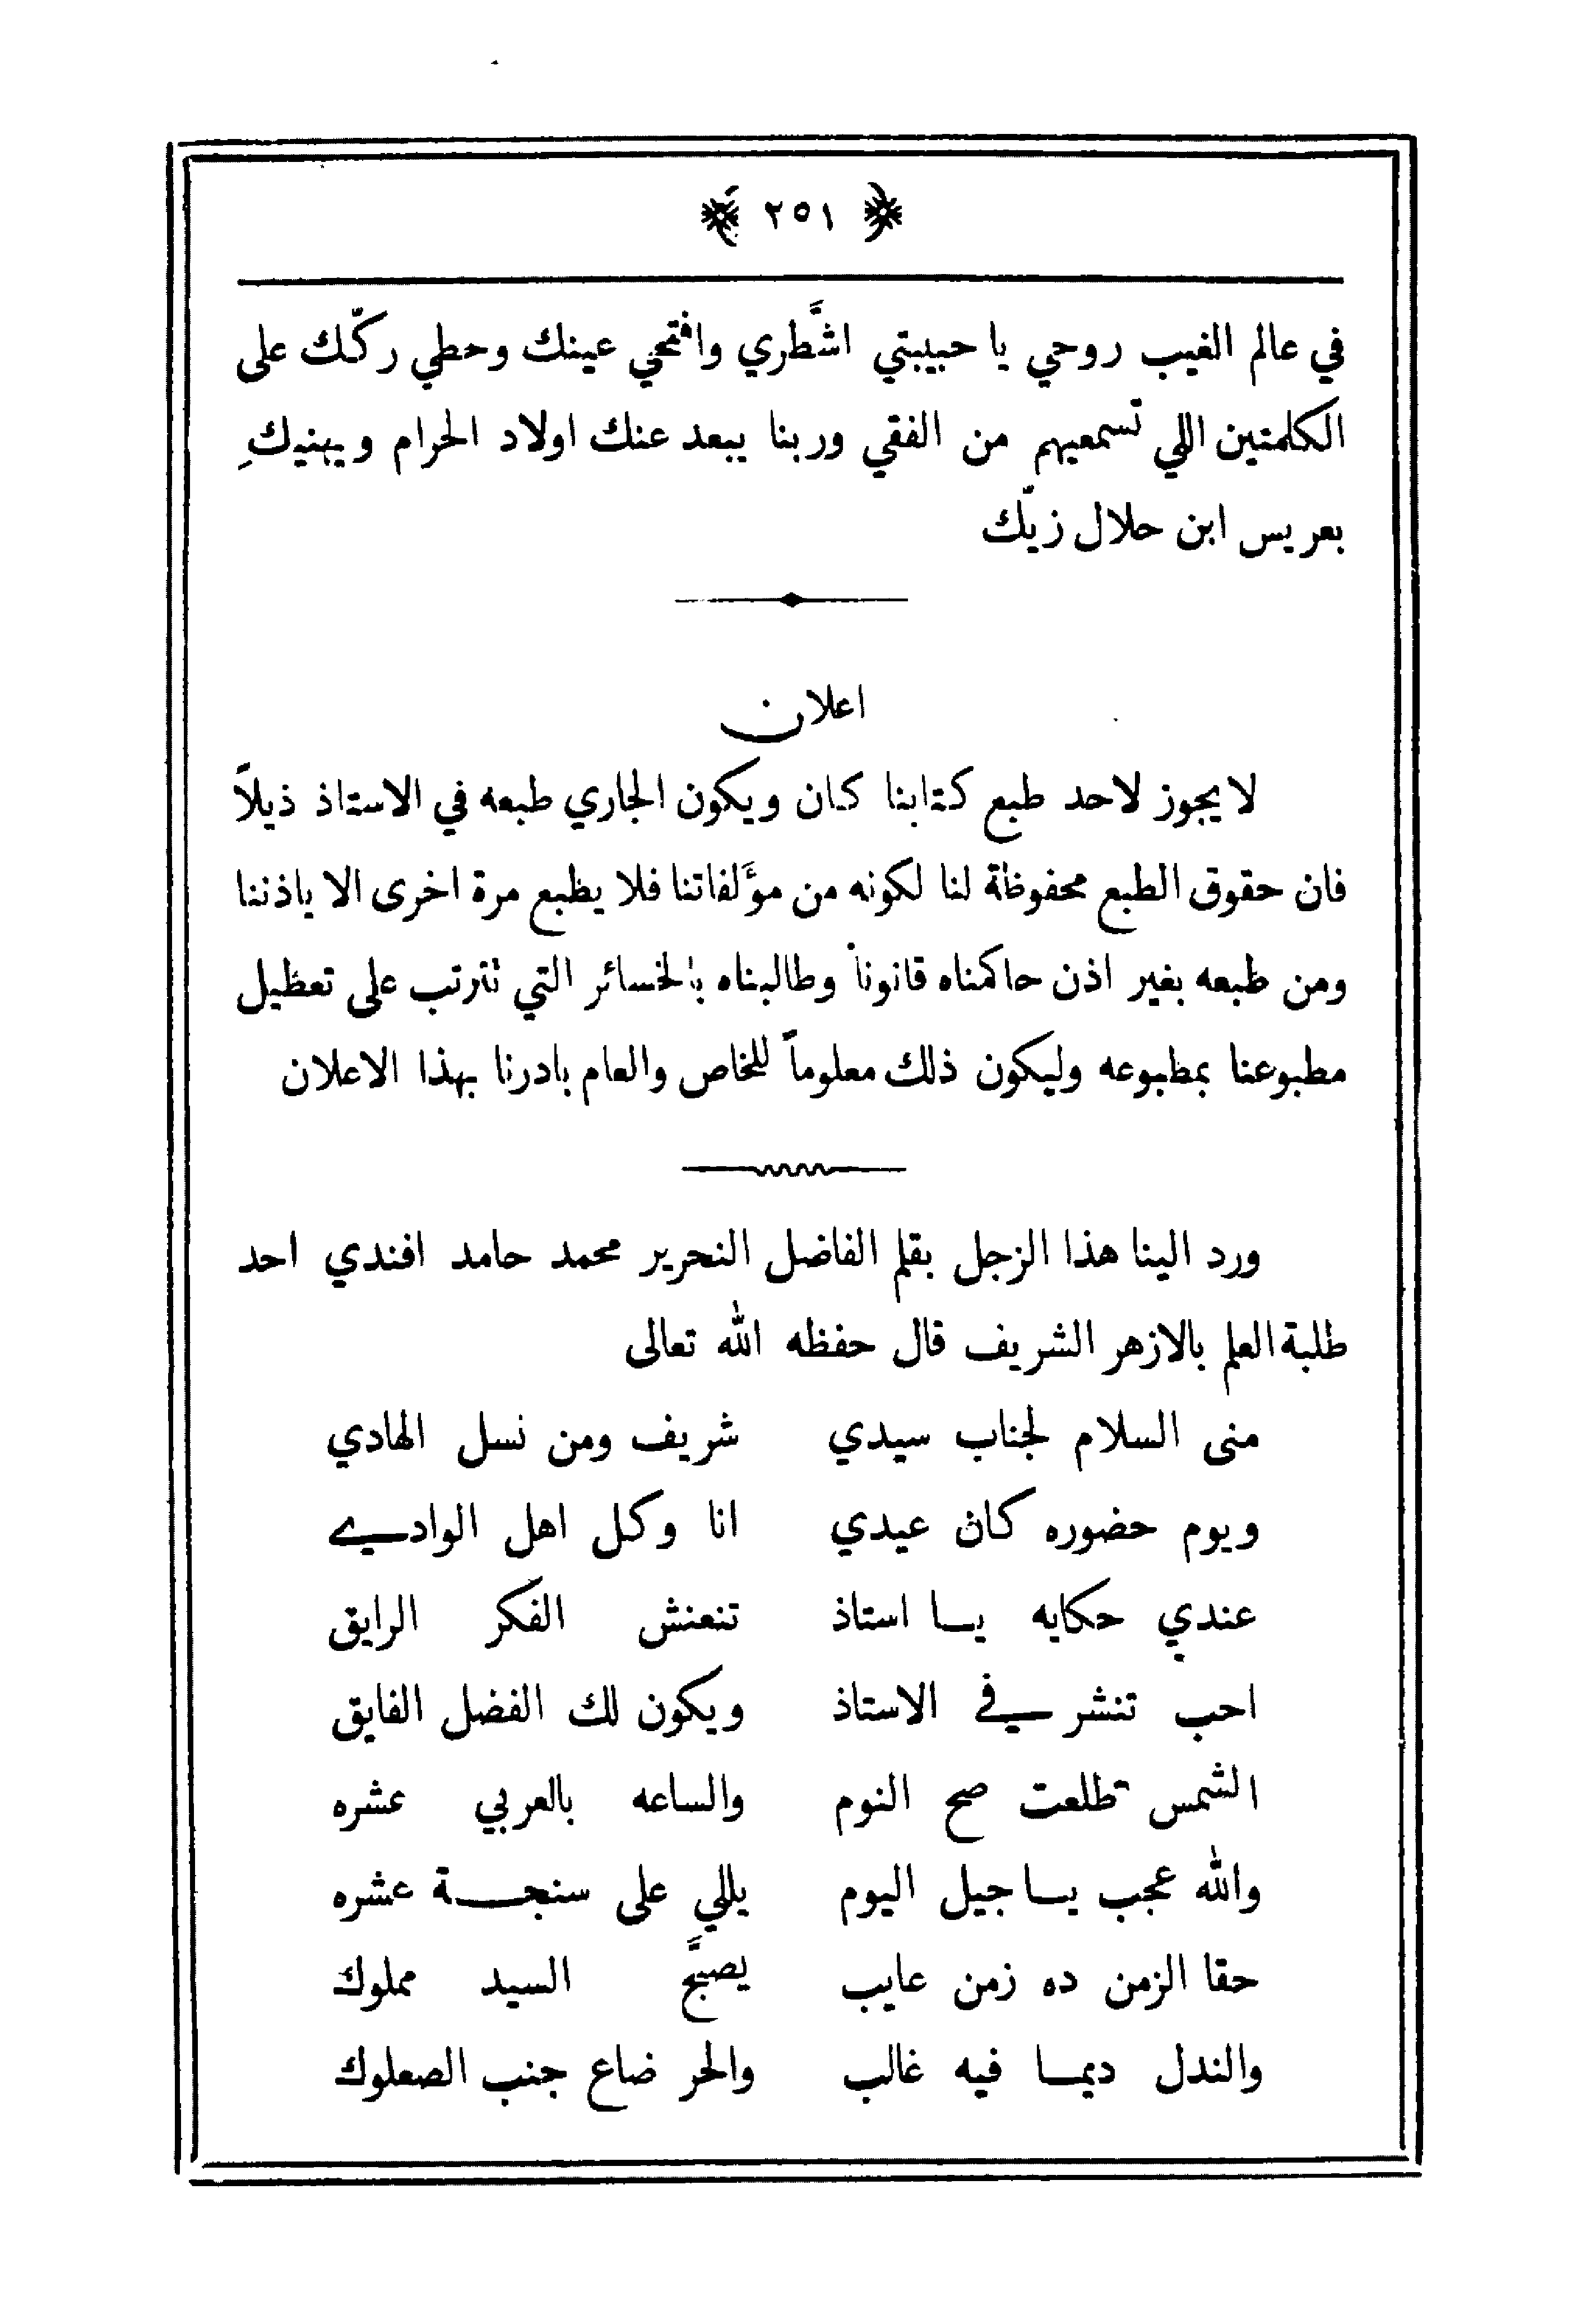 ٢٥١
في عالم الغيب روحي يا حبيبتي اشَّطري وافتحي عينك وحطي ركّك على
الكلمتين اللي تسمعيهم من الفقي وربنا يبعد عنك اولاد الحرام ويهنيكِ
بعريس ابن حلال زيّك
اعلان
لا يجوز لاحد طبع كتابنا كان ويكون الجاري طبعه في الاستاذ ذيلاً
فان حقوق الطبع محفوظة لنا لكونه من مؤَلفاتنا فلا يطبع مرة اخرى الا باذننا
ومن طبعه بغير اذن حاكمناه قانوناً وطالبناه بالخسائر التي نترتب على تعطيل
مطبوعنا بمطبوعه وليكون ذلك معلوماً للخاص والعام بادرنا بهذا الاعلان
ورد الينا هذا الزجل بقلم الفاضل النحرير محمد حامد افندي احد
طلبة العلم بالازهر الشريف قال حفظه الله تعالى
منى السلام لجناب سيدي شريف ومن نسل الهادي
ويوم حضوره كان عيدي انا وكل اهل الوادي
عندي حكايه يا استاذ تنعنش الفكر الرايق
احب تنشر في الاستاذ ويكون لك الفضل الفايق
الشمس طلعت صح النوم والساعه بالعربي عشره
والله عجب يا جيل اليوم يللي على سنجة عشره
حقا الزمن ده زمن عايب يصبَّح السيد مملوك
والندل ديما فيه غالب والحر ضاع جنب الصعلوك